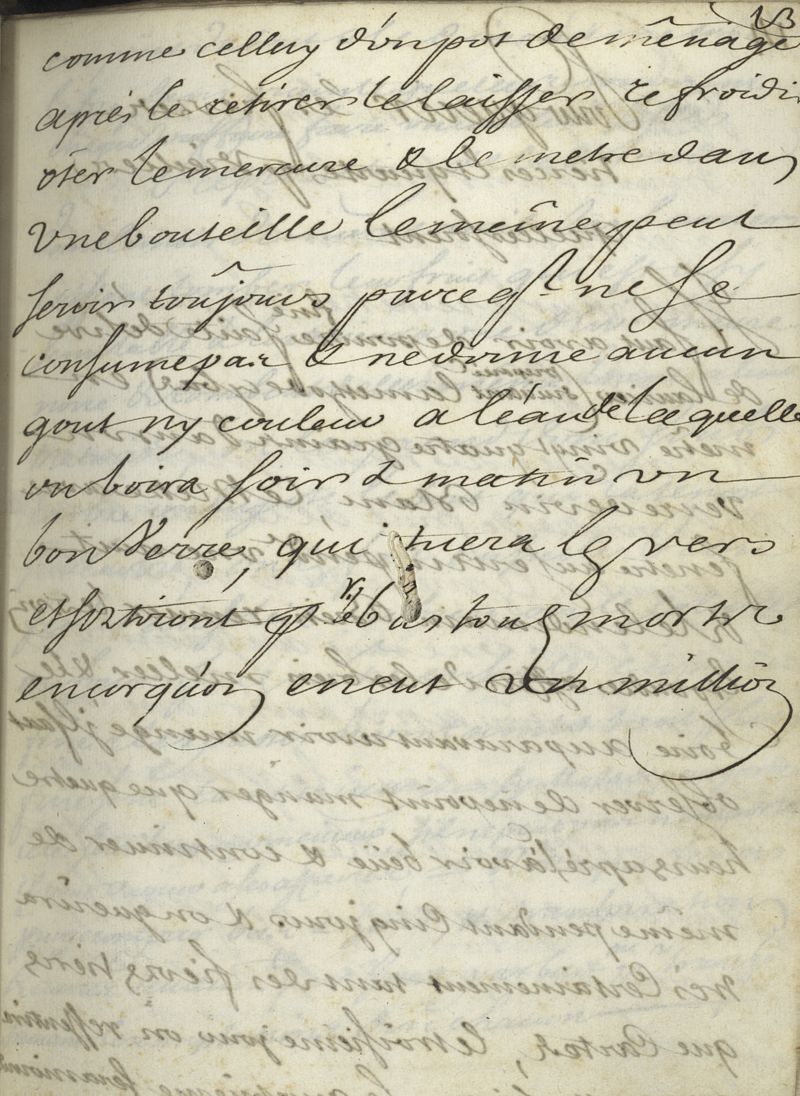 13
comme celluy d'on pot de mênage
aprés le retirer le laisser refroidir
ôter le mercure & le metre dans
vne bouteille le même peut
servir toûjours parce ql ne se
consume pas & ne donne aucun
gout ny couleur a léau de laquelle
on boira soir & matin vn
bon Verre, qui tuera les vers
et sortiront pr le bas tous morts
encor quon en eut vn million